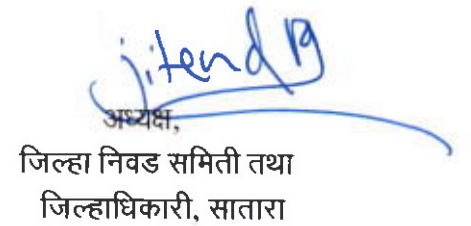 jitend
अध्यक्ष,
जिल्हा निवड समिती तथा
जिल्हाधिकारी, सातारा